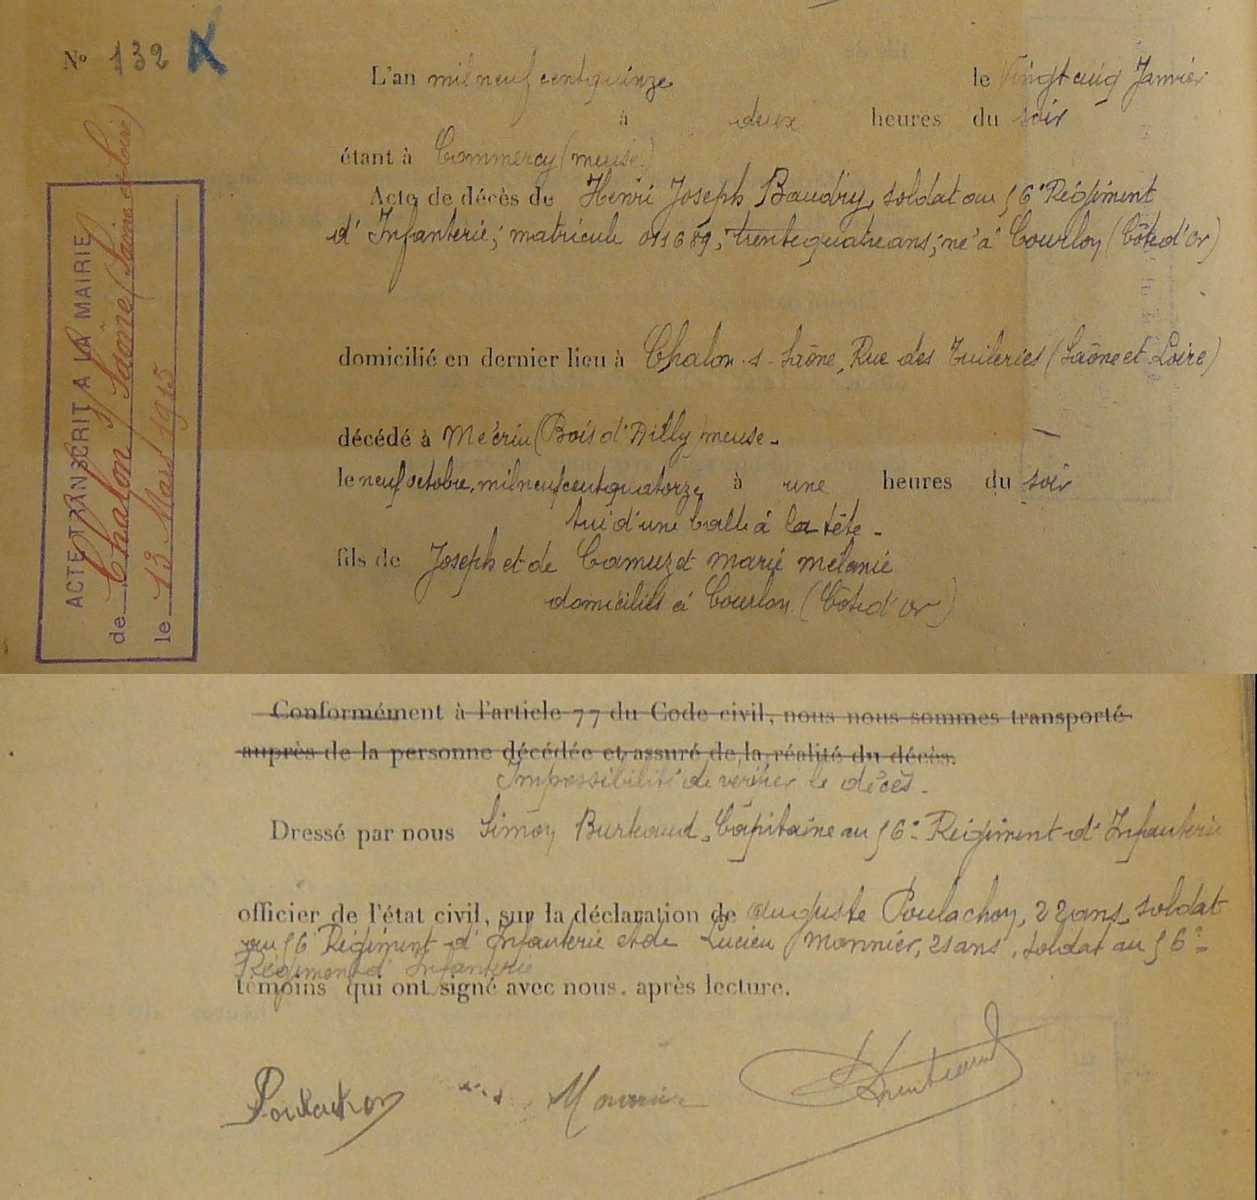 N° 132
L'an mil neuf cent quinze le vingt cinq Janvier
à deux heures du soir
étant à Commercy (meuse)
Acte de décès de Henri Joseph Baudry, soldat au 56e Régiment
d'Infanterie, matricule 011689, trente quatre ans, né à Courlon (Côte d'Or)
domicilié en dernier lieu à Chalon-s-Saône, Rue des Tuileries (Saône et Loire)
décédé à Mécrin (Bois d'Ailly) meuse -
le neuf octobre, mil neuf cent quatorze à une heures du soir
tué d'une balle à la tête -
fils de Joseph et de Camuzet marie mélanie
domiciliés à Courlon (Côte d'Or)
ACTE TRANSCRIT A LA MAIRIE
de Chalon s/ Saône (Saône et Loire)
le 13 Mars 1915
Conformément à l'article 77 du Code civil, nous nous sommes transporté
auprès de la personne décédée et assuré de la réalité du décès.
Impossibilité de vérifier le décès -
Dressé par nous Simon Capitaine au 56e Régiment d'Infanterie
officier de l'état civil, sur la déclaration de Auguste Poulachon, 22 ans, soldat
au 56 Régiment d'Infanterie et de Lucien Monnier, 21 ans, soldat au 56e
Régiment d'Infanterie
témoins qui ont signé avec nous, après lecture.
Poulachon Monnier